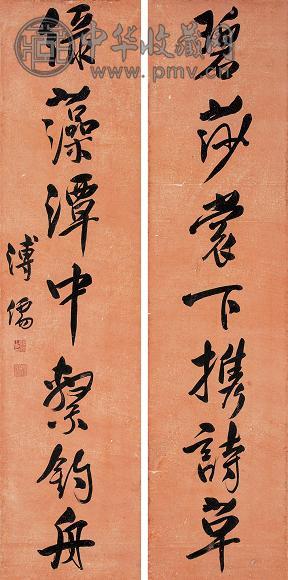 中华收藏网
www.pmv.cn
碧莎裳下携詩草
綠藻潭中繫釣舟
溥儒